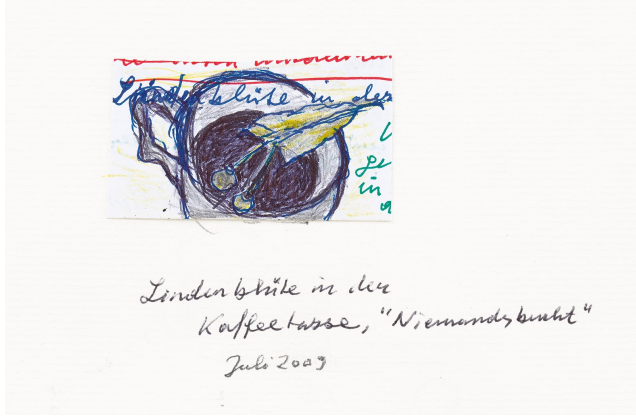 Lindenblüte in der
ge
in
Lindenblüte in der
Kaffeetasse, "Niemandsbucht"
Juli 2009